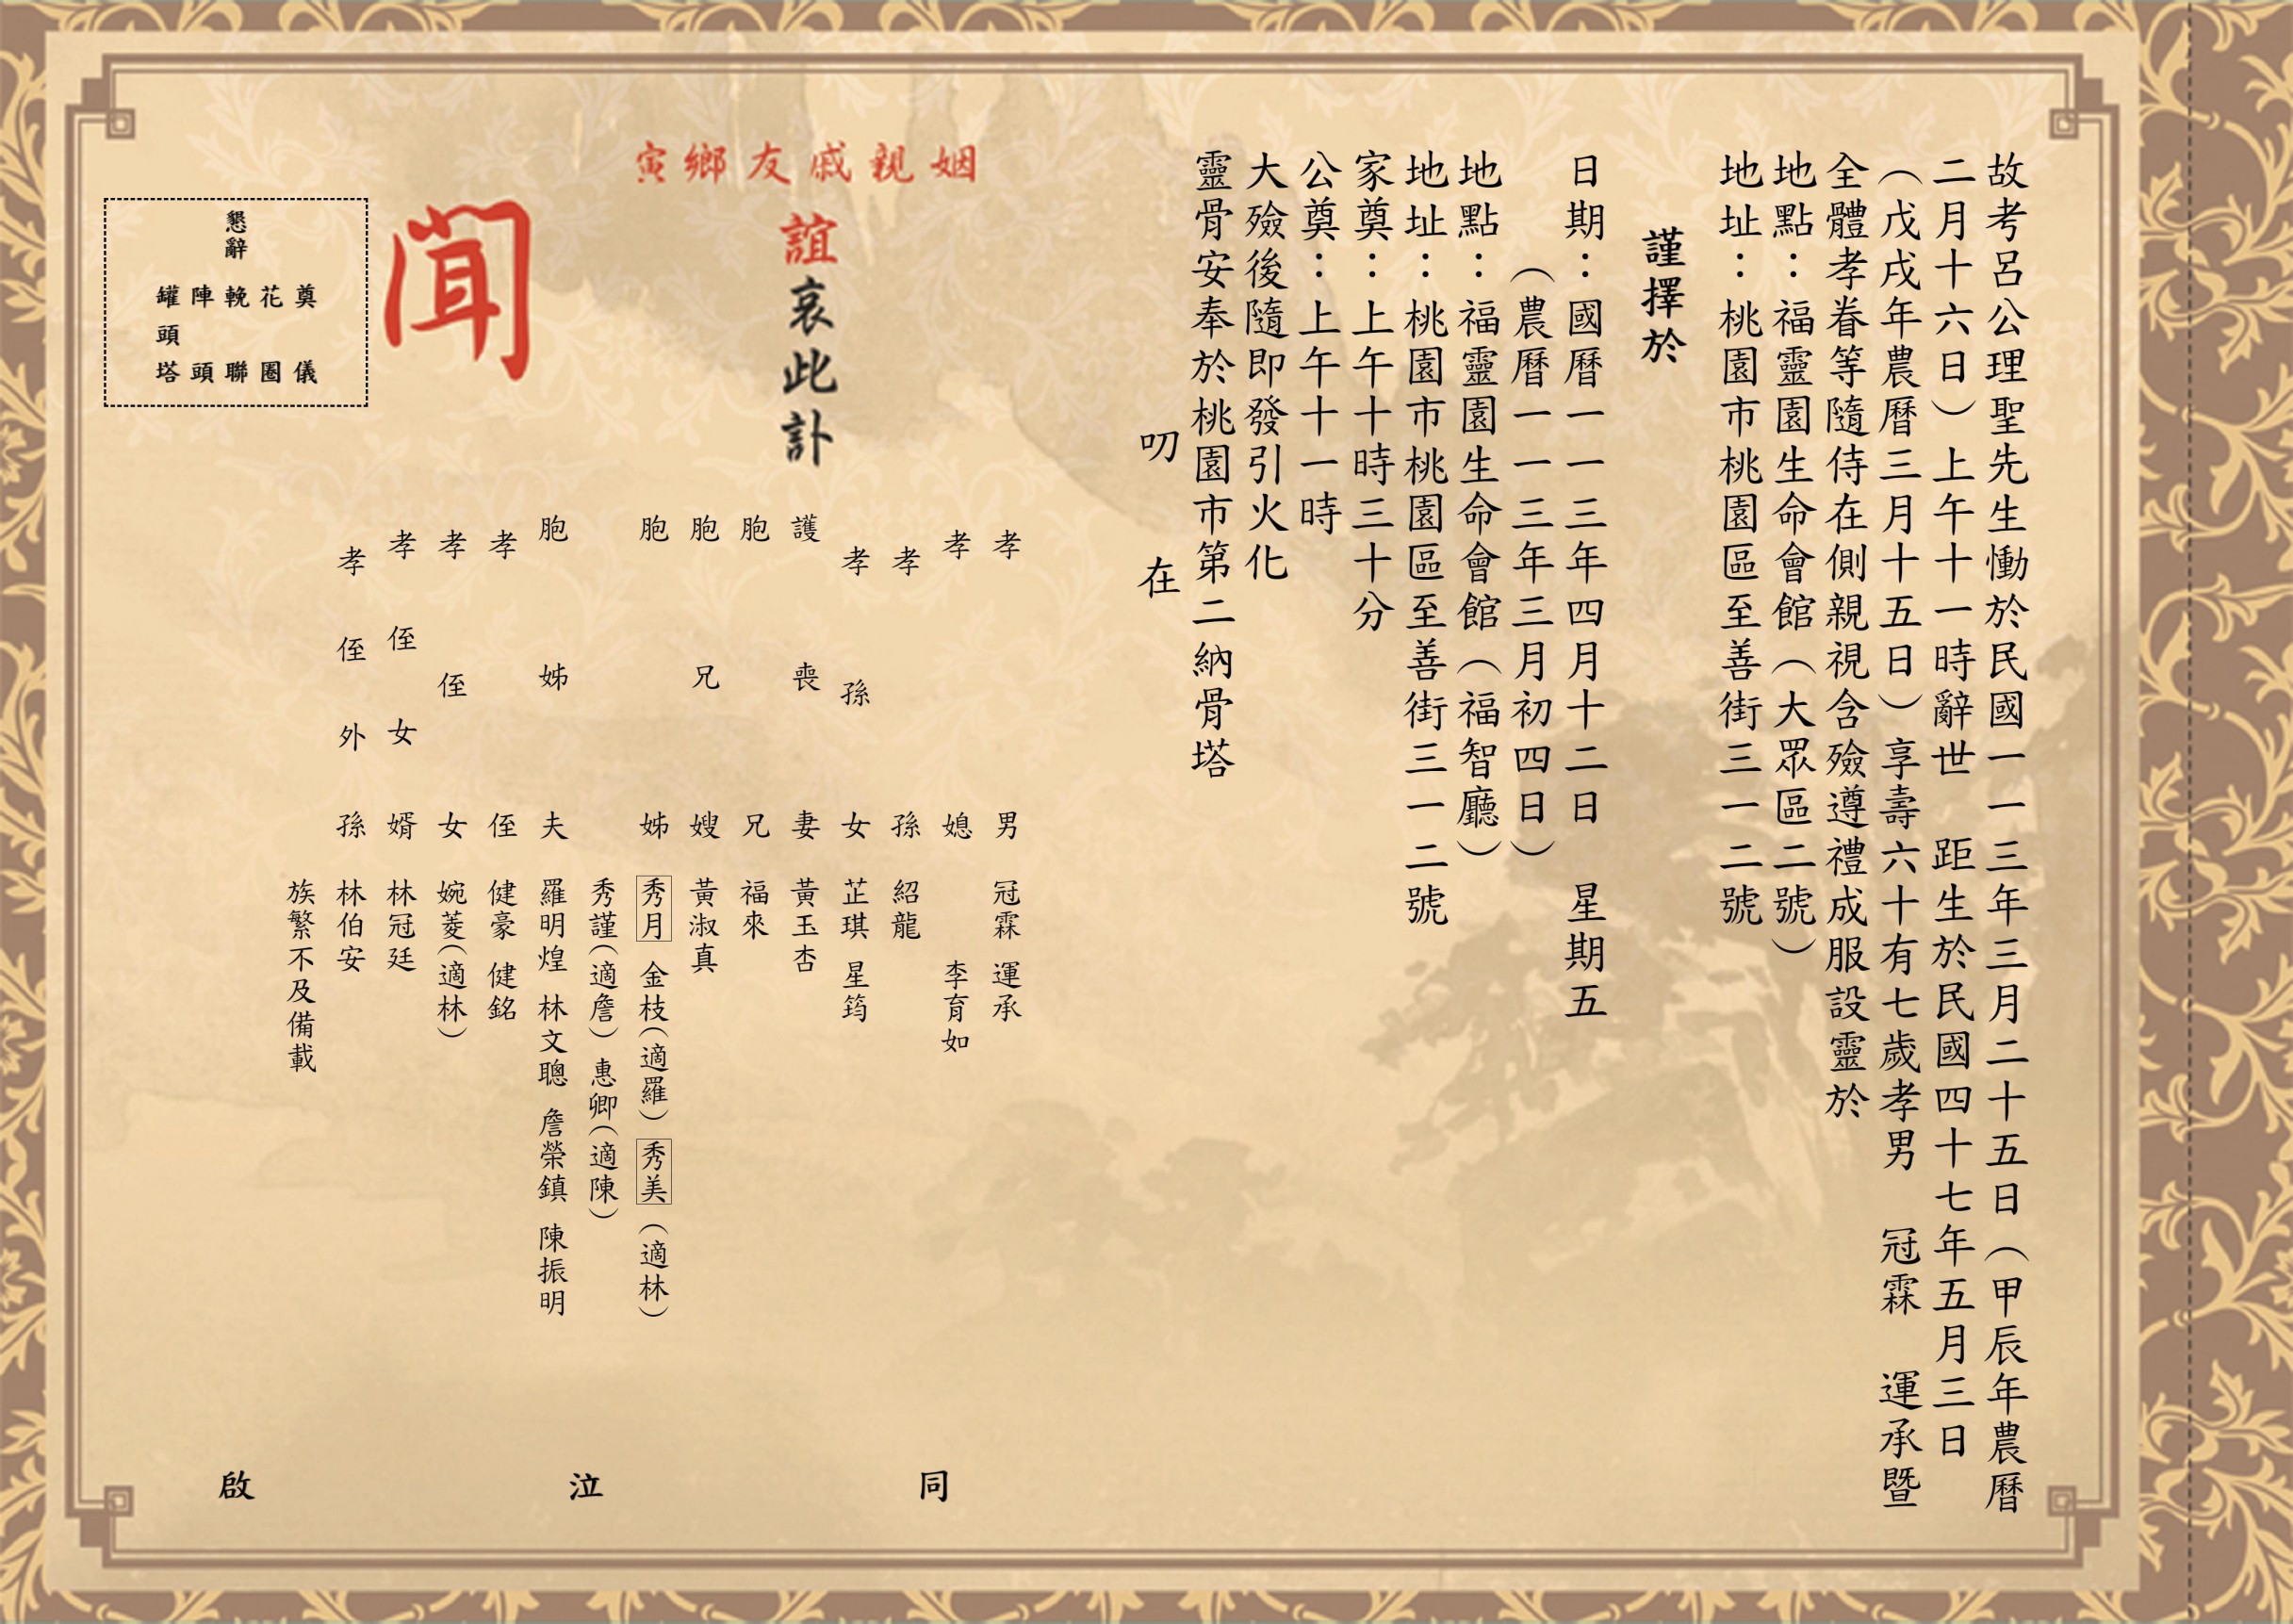 故考呂公理聖先生慟於民國一一三年三月二十五日（甲辰年農曆
二月十六日）上午十一時辭世　距生於民國四十七年五月三日
（戊戌年農曆三月十五日）享壽六十有七歲孝男　冠霖　運承暨
全體孝眷等隨侍在側親視含殮遵禮成服設靈於
地點：福靈園生命會館（大眾區二號）
地址：桃園市桃園區至善街三一二號
謹擇於
日期：國曆一一三年四月十二日　星期五
（農曆一一三年三月初四日）
地點：福靈園生命會館（福智廳）
地址：桃園市桃園區至善街三一二號
家奠：上午十時三十分
公奠：上午十一時
大殮後隨即發引火化
靈骨安奉於桃園市第二納骨塔
叨　在
姻親戚友鄉寅
誼哀此訃
聞
懇辭
奠儀　花圈　輓聯　陣頭　罐頭塔
孝男　冠霖　運承
孝媳　李育如
孝孫　紹龍
孝孫女　芷琪　星筠
護喪妻　黃玉杏
胞兄　福來
胞兄嫂　黃淑真
胞姊　秀月　金枝（適羅）　秀美（適林）
秀謹（適詹）　惠卿（適陳）
胞姊夫　羅明煌　林文聰　詹榮鎮　陳振明
孝侄　健豪　健銘
孝侄女　婉菱（適林）
孝侄女婿　林冠廷
孝侄外孫　林伯安
族繁不及備載
同　泣　啟